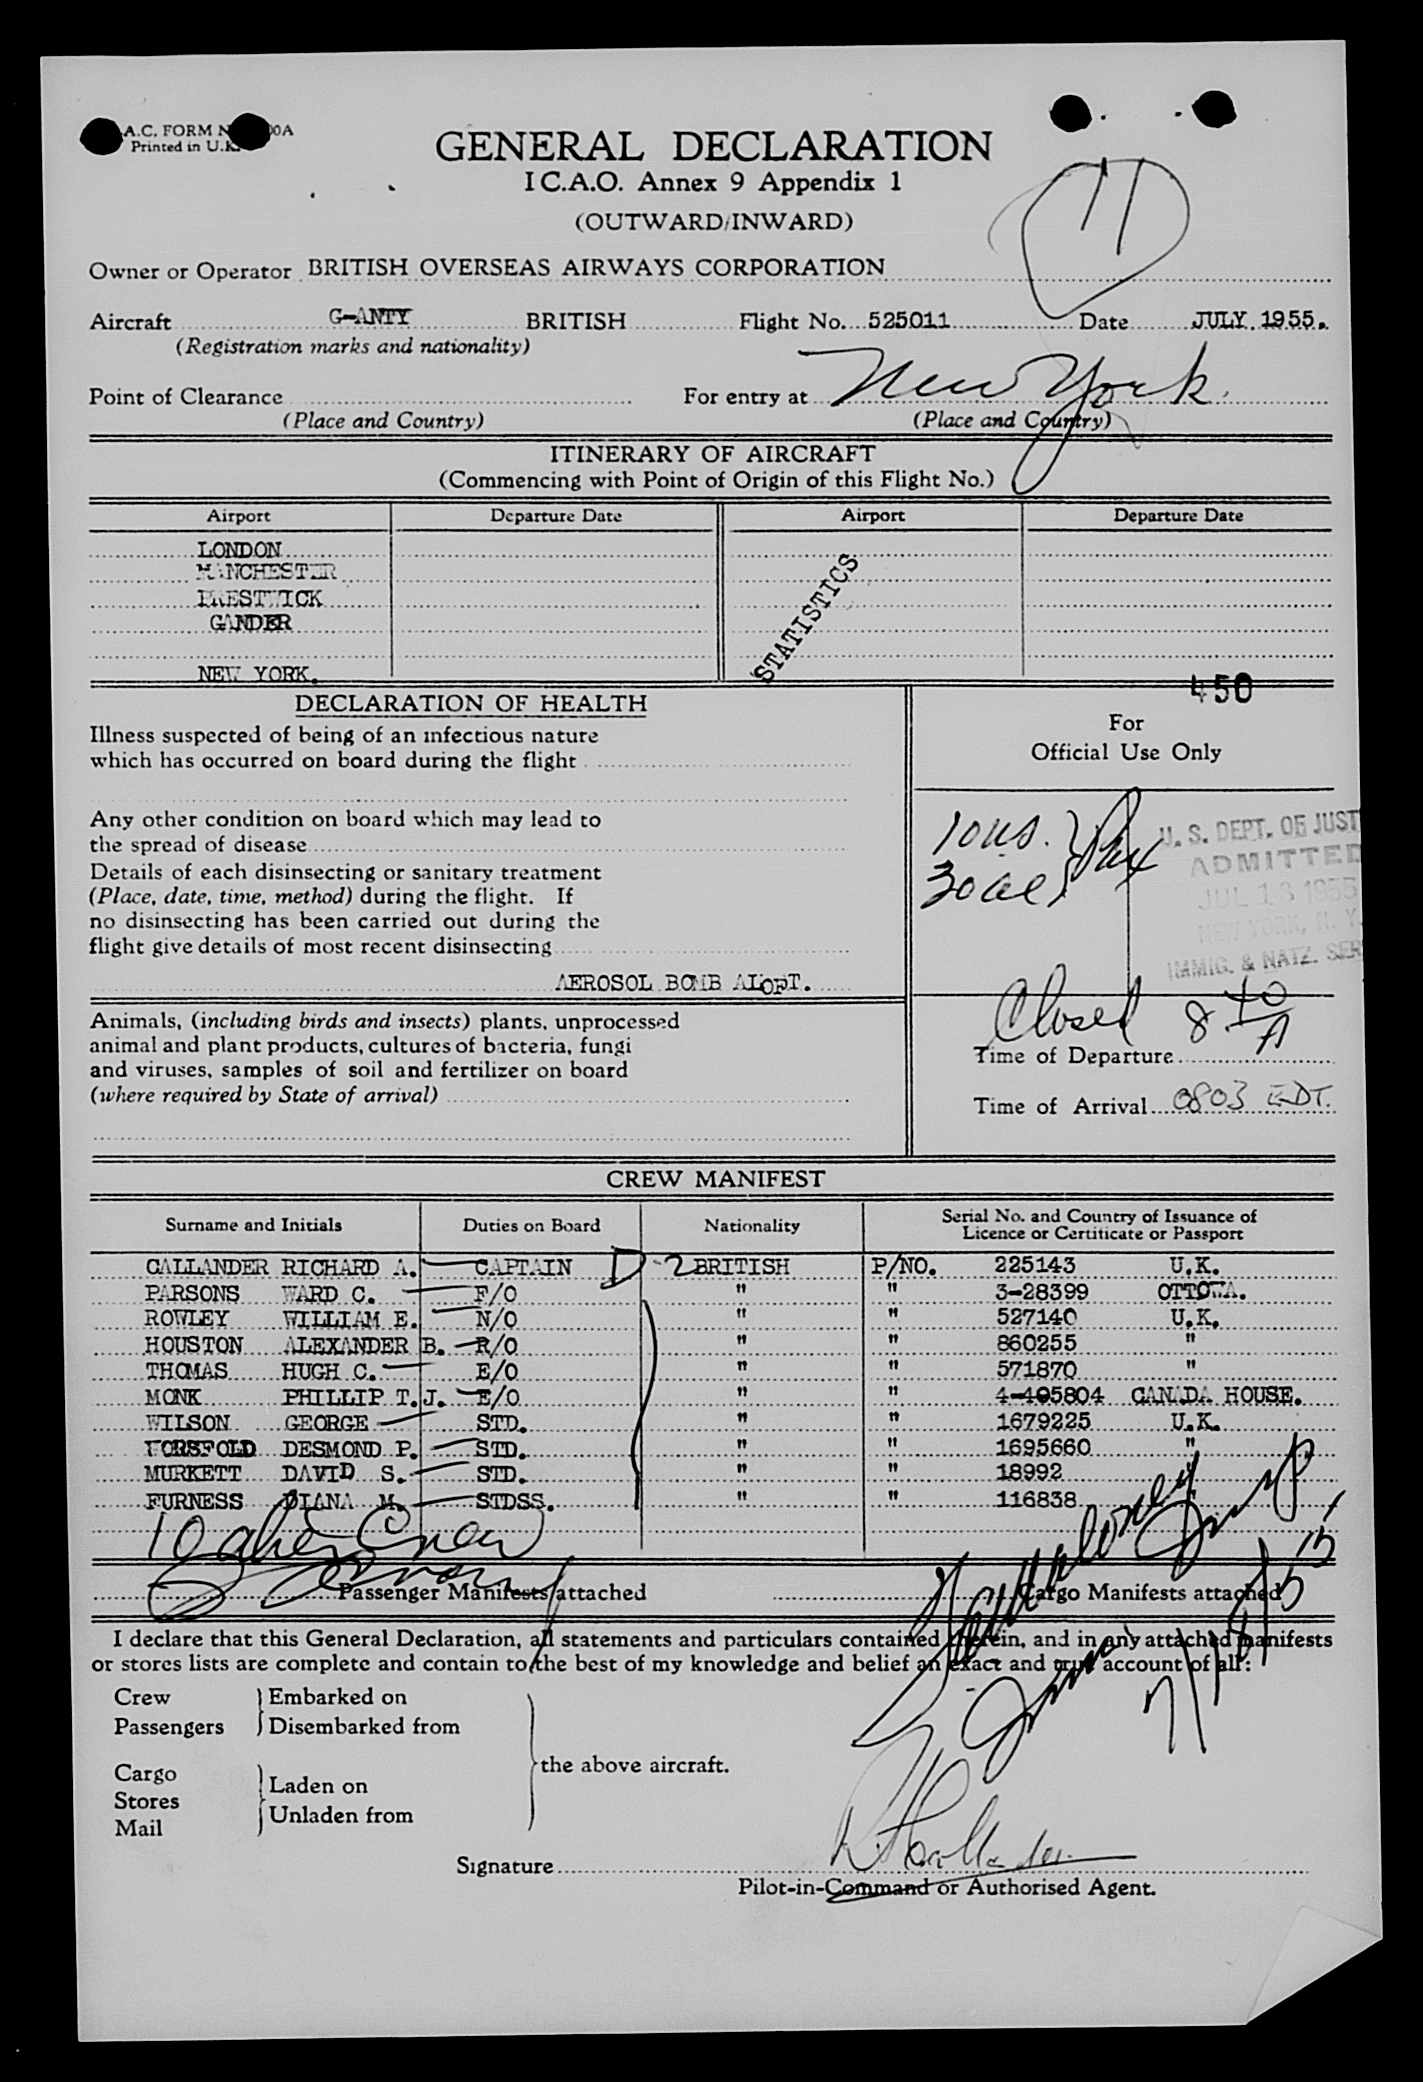 A.C. FORM N 00A
Printed in U.K.
11
GENERAL DECLARATION
I C.A.O. Annex 9 Appendix 1
(OUTWARD/INWARD)
Owner or Operator BRITISH OVERSEAS AIRWAYS CORPORATION
Aircraft G-ANTY BRITISH Flight No. 525011 Date JULY. 1955.
(Registration marks and nationality)
Point of Clearance For entry at New York.
(Place and Country) (Place and Country)
ITINERARY OF AIRCRAFT
(Commencing with Point of Origin of this Flight No.)
Airport Departure Date Airport Departure Date
LONDON
MANCHESTER
PRESTWICK
GANDER
NEW YORK.
STATISTICS
450
DECLARATION OF HEALTH
For
Official Use Only
Illness suspected of being of an infectious nature
which has occurred on board during the flight
Any other condition on board which may lead to
the spread of disease
Details of each disinsecting or sanitary treatment
(Place, date, time, method) during the flight. If
no disinsecting has been carried out during the
flight give details of most recent disinsecting
AEROSOL BOMB ALOFT.
10 US. } Pax
30 ael
U. S. DEPT. OF JUST
ADMITTED
JUL 18 1955
NEW YORK, N. Y.
IMMIG. & NATZ. SER
Animals, (including birds and insects) plants, unprocessed
animal and plant products, cultures of bacteria, fungi
and viruses, samples of soil and fertilizer on board
(where required by State of arrival)
Closed 8 40 A
Time of Departure
Time of Arrival 0803 EDT.
CREW MANIFEST
Surname and Initials Duties on Board Nationality Serial No. and Country of Issuance of
Licence or Certificate or Passport
CALLANDER RICHARD A. CAPTAIN D-2 BRITISH P/NO. 225143 U.K.
PARSONS WARD C. F/O " " 3-28399 OTTOWA.
ROWLEY WILLIAM E. N/O " " 527140 U.K.
HOUSTON ALEXANDER B. R/O " " 860255 "
THOMAS HUGH C. E/O " " 571870 "
MONK PHILLIP T.J. E/O " " 4-405804 CANADA HOUSE.
WILSON GEORGE STD. " " 1679225 U.K.
HORSFOLD DESMOND P. STD. " " 1695660 "
MURKETT DAVID S. STD. " " 18992 "
FURNESS DIANA M. STDSS. " " 116838 "
10 alien Crew
Passenger Manifests attached Cargo Manifests attached
I declare that this General Declaration, all statements and particulars contained therein, and in any attached manifests
or stores lists are complete and contain to the best of my knowledge and belief an exact and true account of all :
7/18/55
Crew } Embarked on
Passengers } Disembarked from
the above aircraft.
Cargo
Stores } Laden on
Mail } Unladen from
Signature
Pilot-in-Command or Authorised Agent.